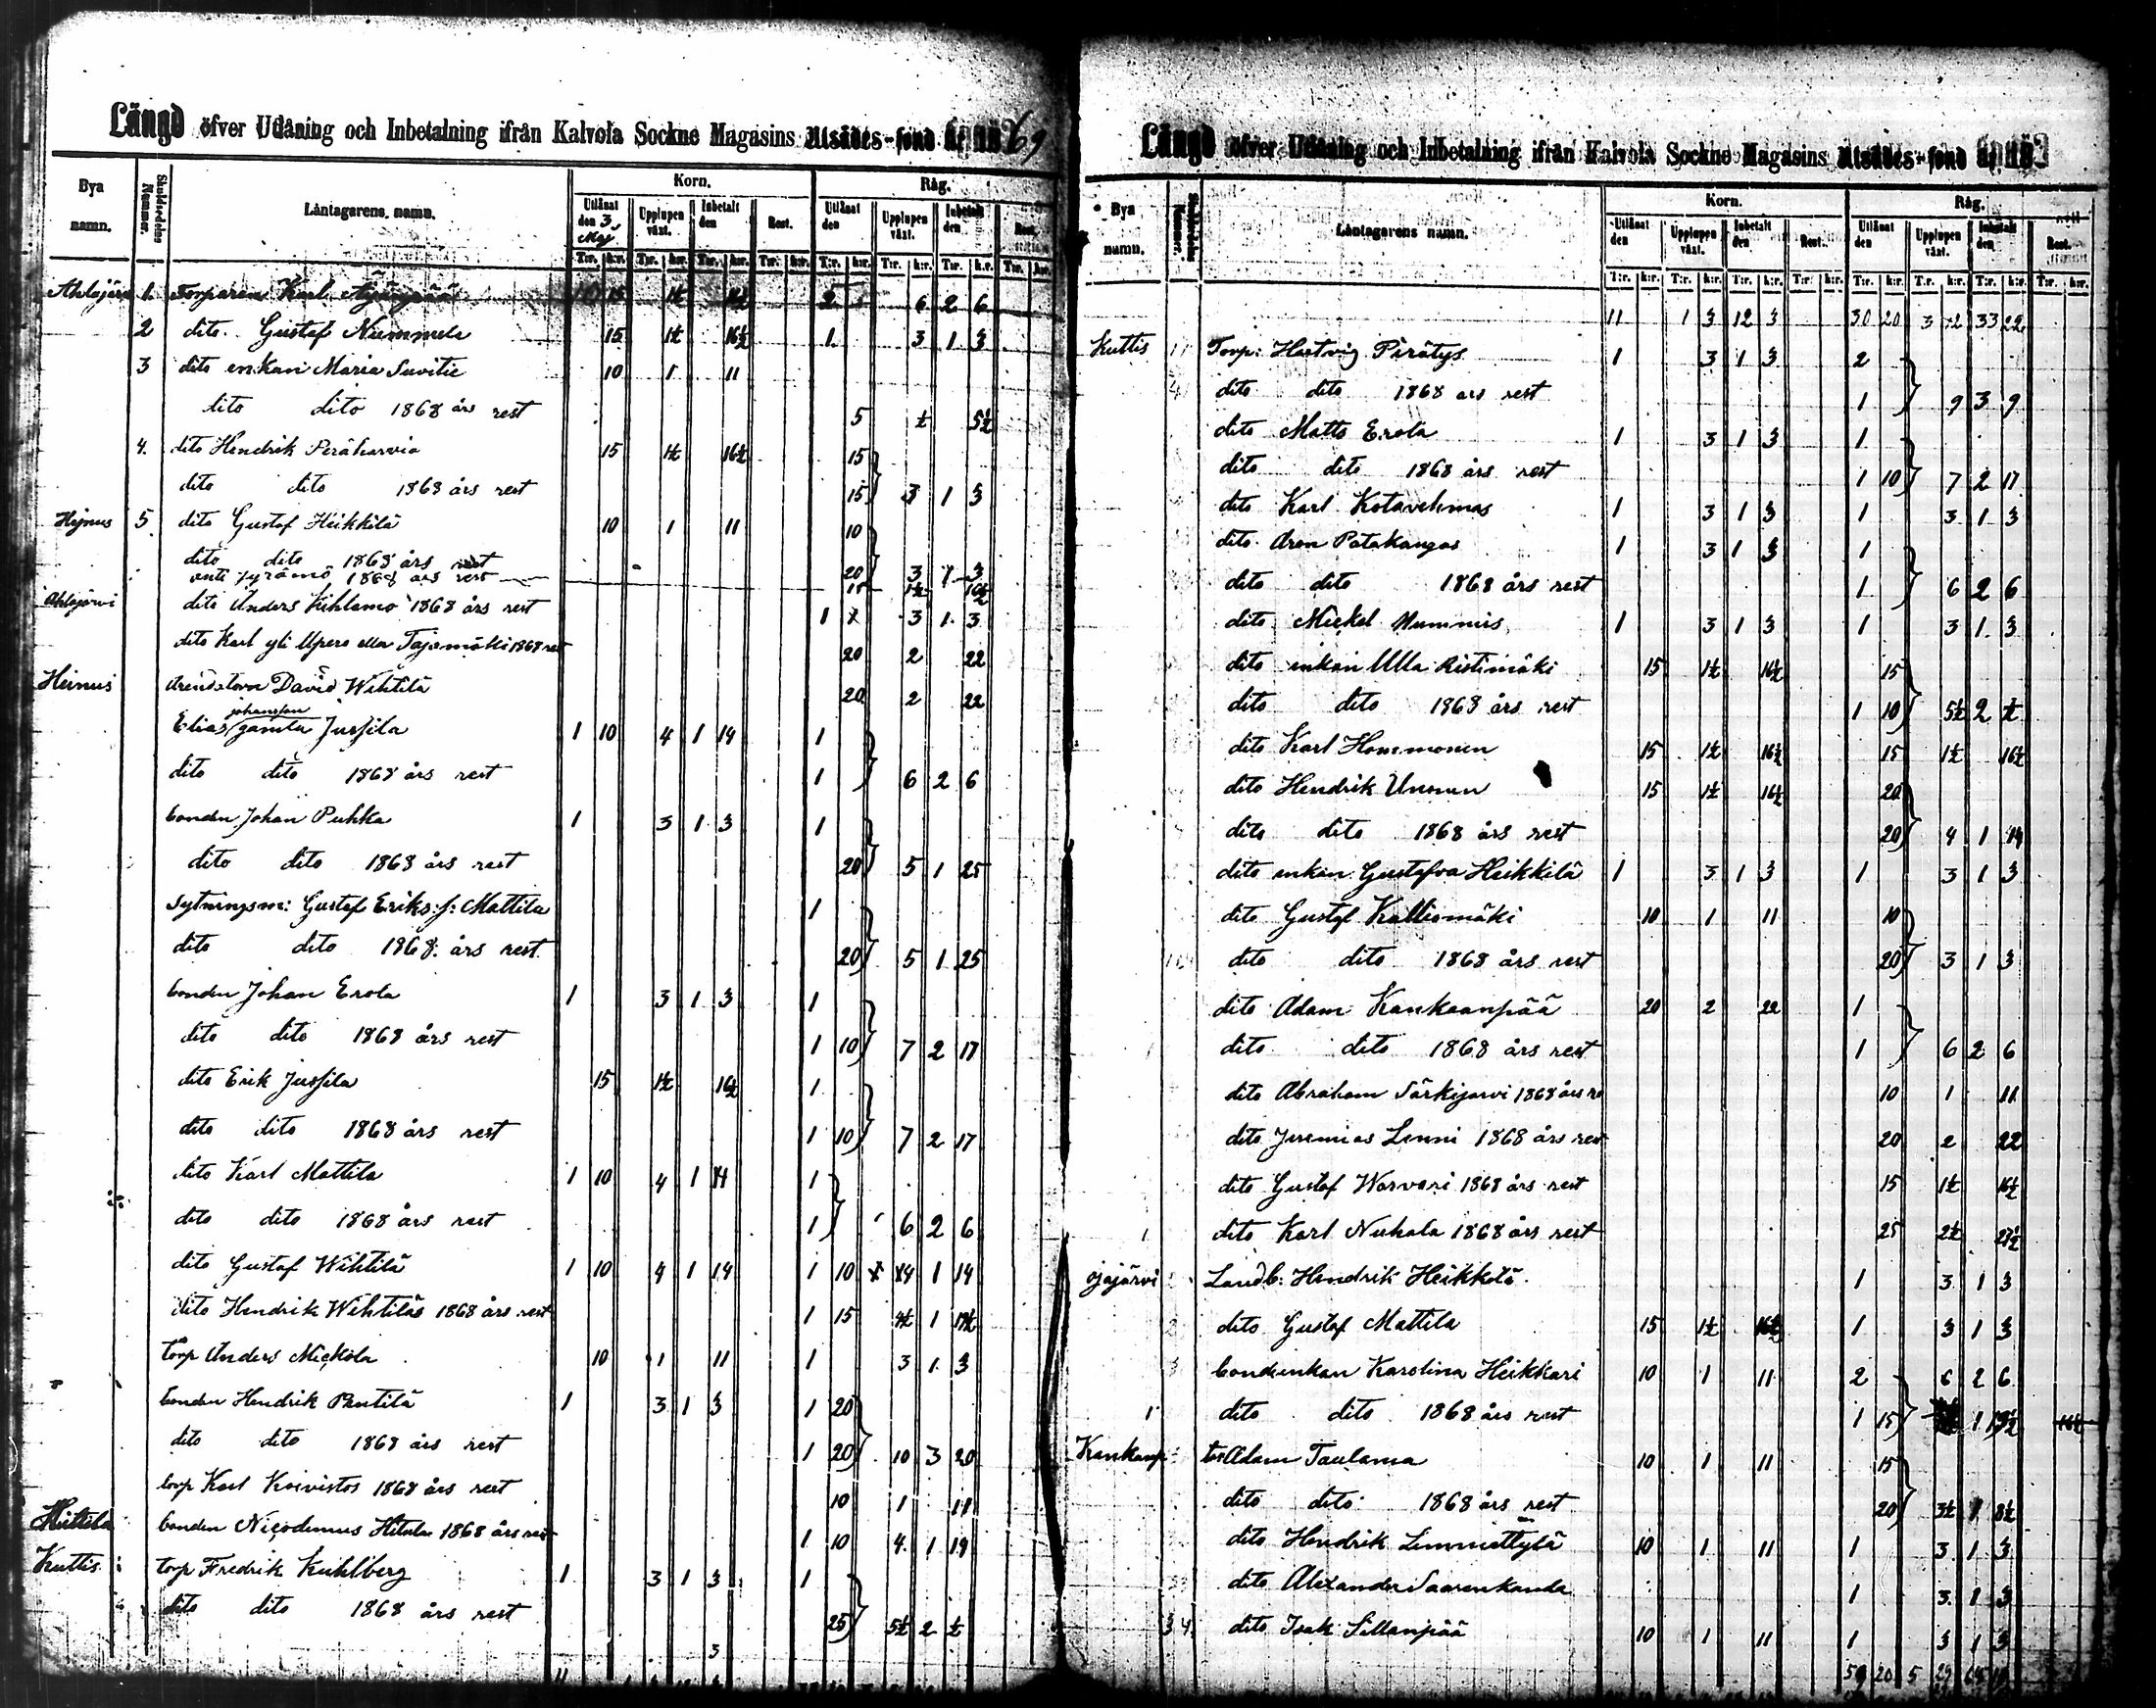 Längd öfver Utlåning och Inbetalning ifrån Kalvola Sockne Magasins Utsädes-fond år 1869
Bya namn. Skuldsedelns Nummer. Låntagarens namn. Korn. Råg.
Utlånat den 3 Maj Upplupen växt. Inbetalt den Rest. Utlånat den Upplupen växt. Inbetalt den Rest.
T:r. k:r. T:r. k:r. T:r. k:r. T:r. k:r. T:r. k:r. T:r. k:r. T:r. k:r. T:r. k:r.
Ahlajärvi 1. Torparen Karl 15 1½ 16½ 2 6 2 6
2 dito Gustaf Nummela 15 1½ 16½ 1 3 1 3
3 dito enkan Maria Suvitie 10 1 11
dito dito 1868 års rest 5 ½ 5½
4. dito Hendrik Peräharvia 15 1½ 16½ 15
dito dito 1868 års rest 15 3 1 3
Heinus 5 dito Gustaf Heikkilä 10 1 11 10
dito dito 1868 års rest 20 3 1 3
anti Jyrämö 1868 års rest 15 1½ 16½
Ahlajärvi dito Anders Kihlamo 1868 års rest 1 3 1 3
dito Karl yli Upero eller Tajamäki 1868 rest 20 2 22
Heinus Arendatorn David Wihtilä 20 2 22
johansson
Elias gamla Jussila 1 10 4 1 14 1
dito dito 1868 års rest 1 6 2 6
bonden Johan Puhka 1 3 1 3 1
dito dito 1868 års rest 20 5 1 25
Sytningsm: Gustaf Eriks:s: Mattila 1
dito dito 1868 års rest 20 5 1 25
bonden Johan Erola 1 3 1 3 1
dito dito 1868 års rest 1 10 7 2 17
dito Erik Jussila 15 1½ 16½ 1
dito dito 1868 års rest 1 10 7 2 17
dito Karl Mattila 1 10 4 1 14 1
dito dito 1868 års rest 1 6 2 6
dito Gustaf Wihtilä 1 10 4 1 14 1 10 4 1 14
dito Hendrik Wihtiläs 1868 års rest 1 15 4½ 1 19½
torp Anders Mickola 10 1 11 1 3 1 3
bonden Hendrik Pentilä 1 3 1 3 1 20
dito dito 1868 års rest 1 20 10 3 20
torp Karl Koivistos 1868 års rest 10 1 11
Hittila bonden Nicodemus Hitula 1868 års rest 1 10 4 1 14
Kuttis torp Fredrik Kuhlberg 1 3 1 3 1
dito dito 1868 års rest 25 5½ 2 ½
Längd öfver Utlåning och Inbetalning ifrån Kalvola Sockne Magasins Utsädes-fond år 18
Bya namn. Skuldsedelns Nummer. Låntagarens namn. Korn. Råg.
Utlånat den Upplupen växt. Inbetalt den Rest. Utlånat den Upplupen växt. Inbetalt den Rest.
T:r. k:r. T:r. k:r. T:r. k:r. T:r. k:r. T:r. k:r. T:r. k:r. T:r. k:r. T:r. k:r.
11 1 3 12 3 30 20 3 2 33 22
Kuttis Torp: Hartvig Pirätys 1 3 1 3 2
dito dito 1868 års rest 1 9 3 9
dito Matts Erola 1 3 1 3 1
dito dito 1868 års rest 1 10 7 2 17
dito Karl Kotavehmas 1 3 1 3 1 3 1 3
dito Aron Patakangas 1 3 1 3 1
dito dito 1868 års rest 1 6 2 6
dito Mickel Nummis 1 3 1 3 1 3 1 3
dito enkan Ulla Ristimäki 15 1½ 16½ 15
dito dito 1868 års rest 1 10 5½ 2 ½
dito Karl Hommonen 15 1½ 16½ 15 1½ 16½
dito Hendrik Unonen 15 1½ 16½ 20
dito dito 1868 års rest 20 4 1 14
dito enkan Gustafva Heikkilä 1 3 1 3 1 3 1 3
dito Gustaf Kalliomäki 10 1 11 10
dito dito 1868 års rest 20 3 1 3
dito Adam Kankaanpää 20 2 22 1
dito dito 1868 års rest 1 6 2 6
dito Abraham Särkijarvi 1868 års re 10 1 11
dito Jeremias Linni 1868 års rest 20 2 22
dito Gustaf Warvari 1868 års rest 15 1½ 16½
dito Karl Niukala 1868 års rest 25 2½ 27½
ojajärvi Landb: Hendrik Heikkilä 1 3 1 3
dito Gustaf Mattila 15 1½ 16½ 1 3 1 3
bondenkan Karolina Heikkari 10 1 11 2 6 2 6
dito dito 1868 års rest 1 15 1 19½ 16½
Kankanp tor Adam Taulama 10 1 11 15
dito dito 1868 års rest 20 3½ 1 8½
dito Hendrik Limmattylä 10 1 11 1 3 1 3
dito Alexander Saarenkanda 1 3 1 3
34 dito Isak Sillanpää 10 1 11 1 3 1 3
59 20 5 29